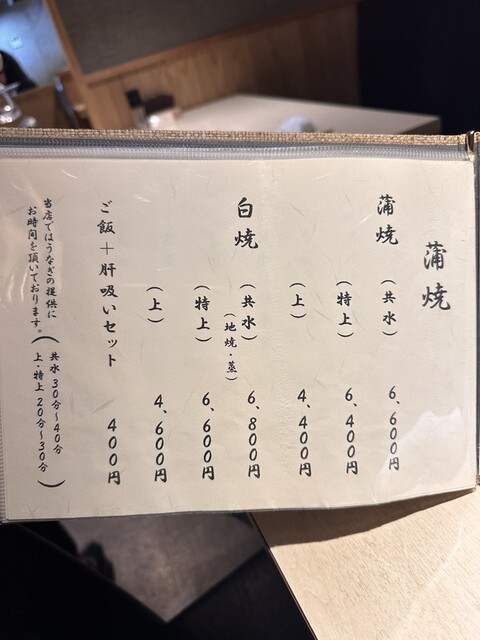 蒲焼
蒲焼 （共水） 6、600円
（特上） 6、400円
（上） 4、400円
白焼 （共水） 6、800円
（地焼・蒸）
（特上） 6、600円
（上） 4、600円
ご飯＋肝吸いセット 400円
当店ではうなぎの提供に
お時間を頂いております。
（共水 30分～40分
上・特上 20分～30分）